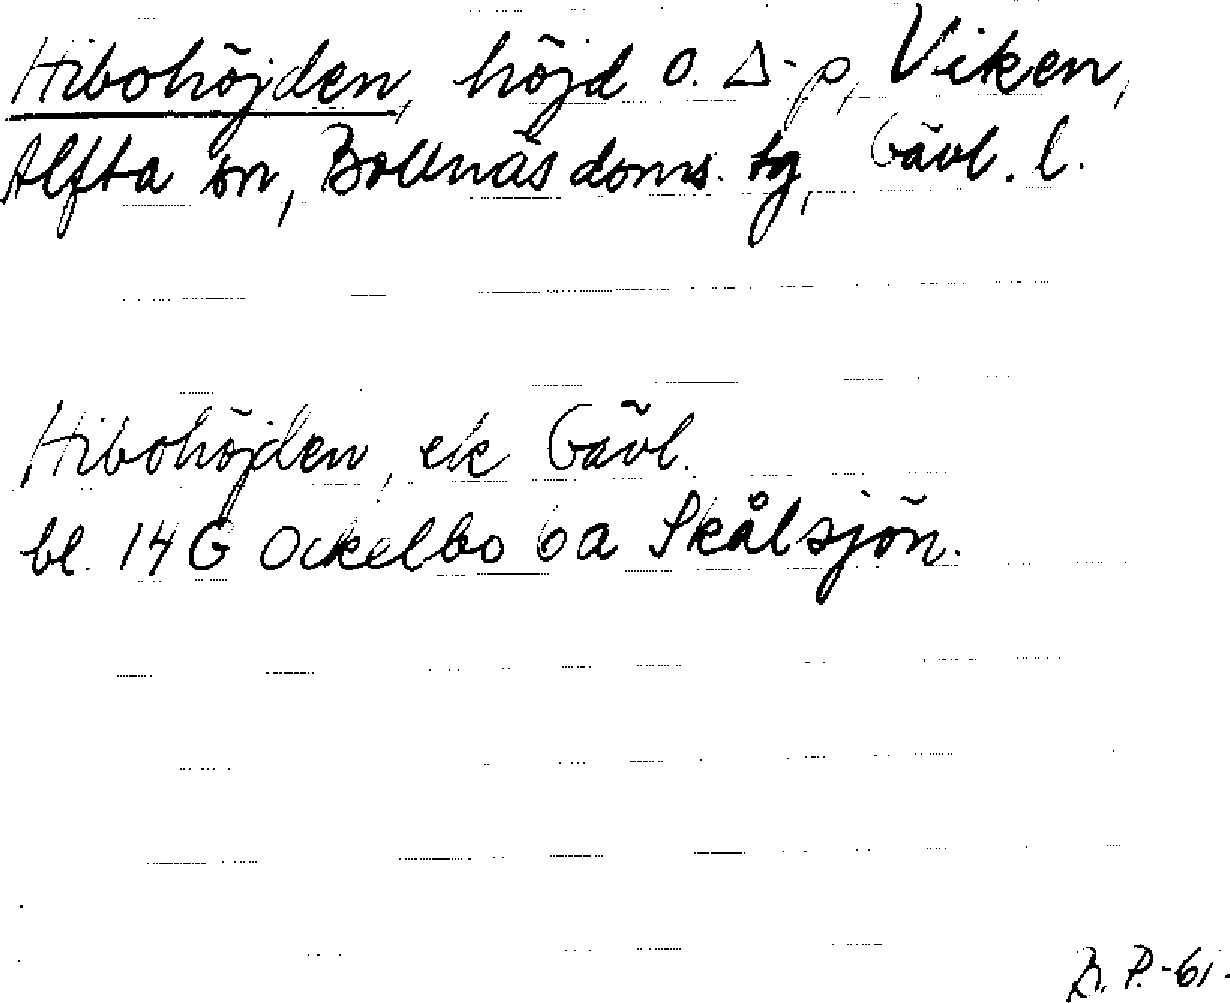 Hibohöjden, höjd o. Δ-p, Viken,
Alfta sn, Bollnäs doms. tg, Gävl. l.
Hibohöjden, ek Gävl.
bl. 14 G Ockelbo 6a Skålsjön.
B. P. -61.